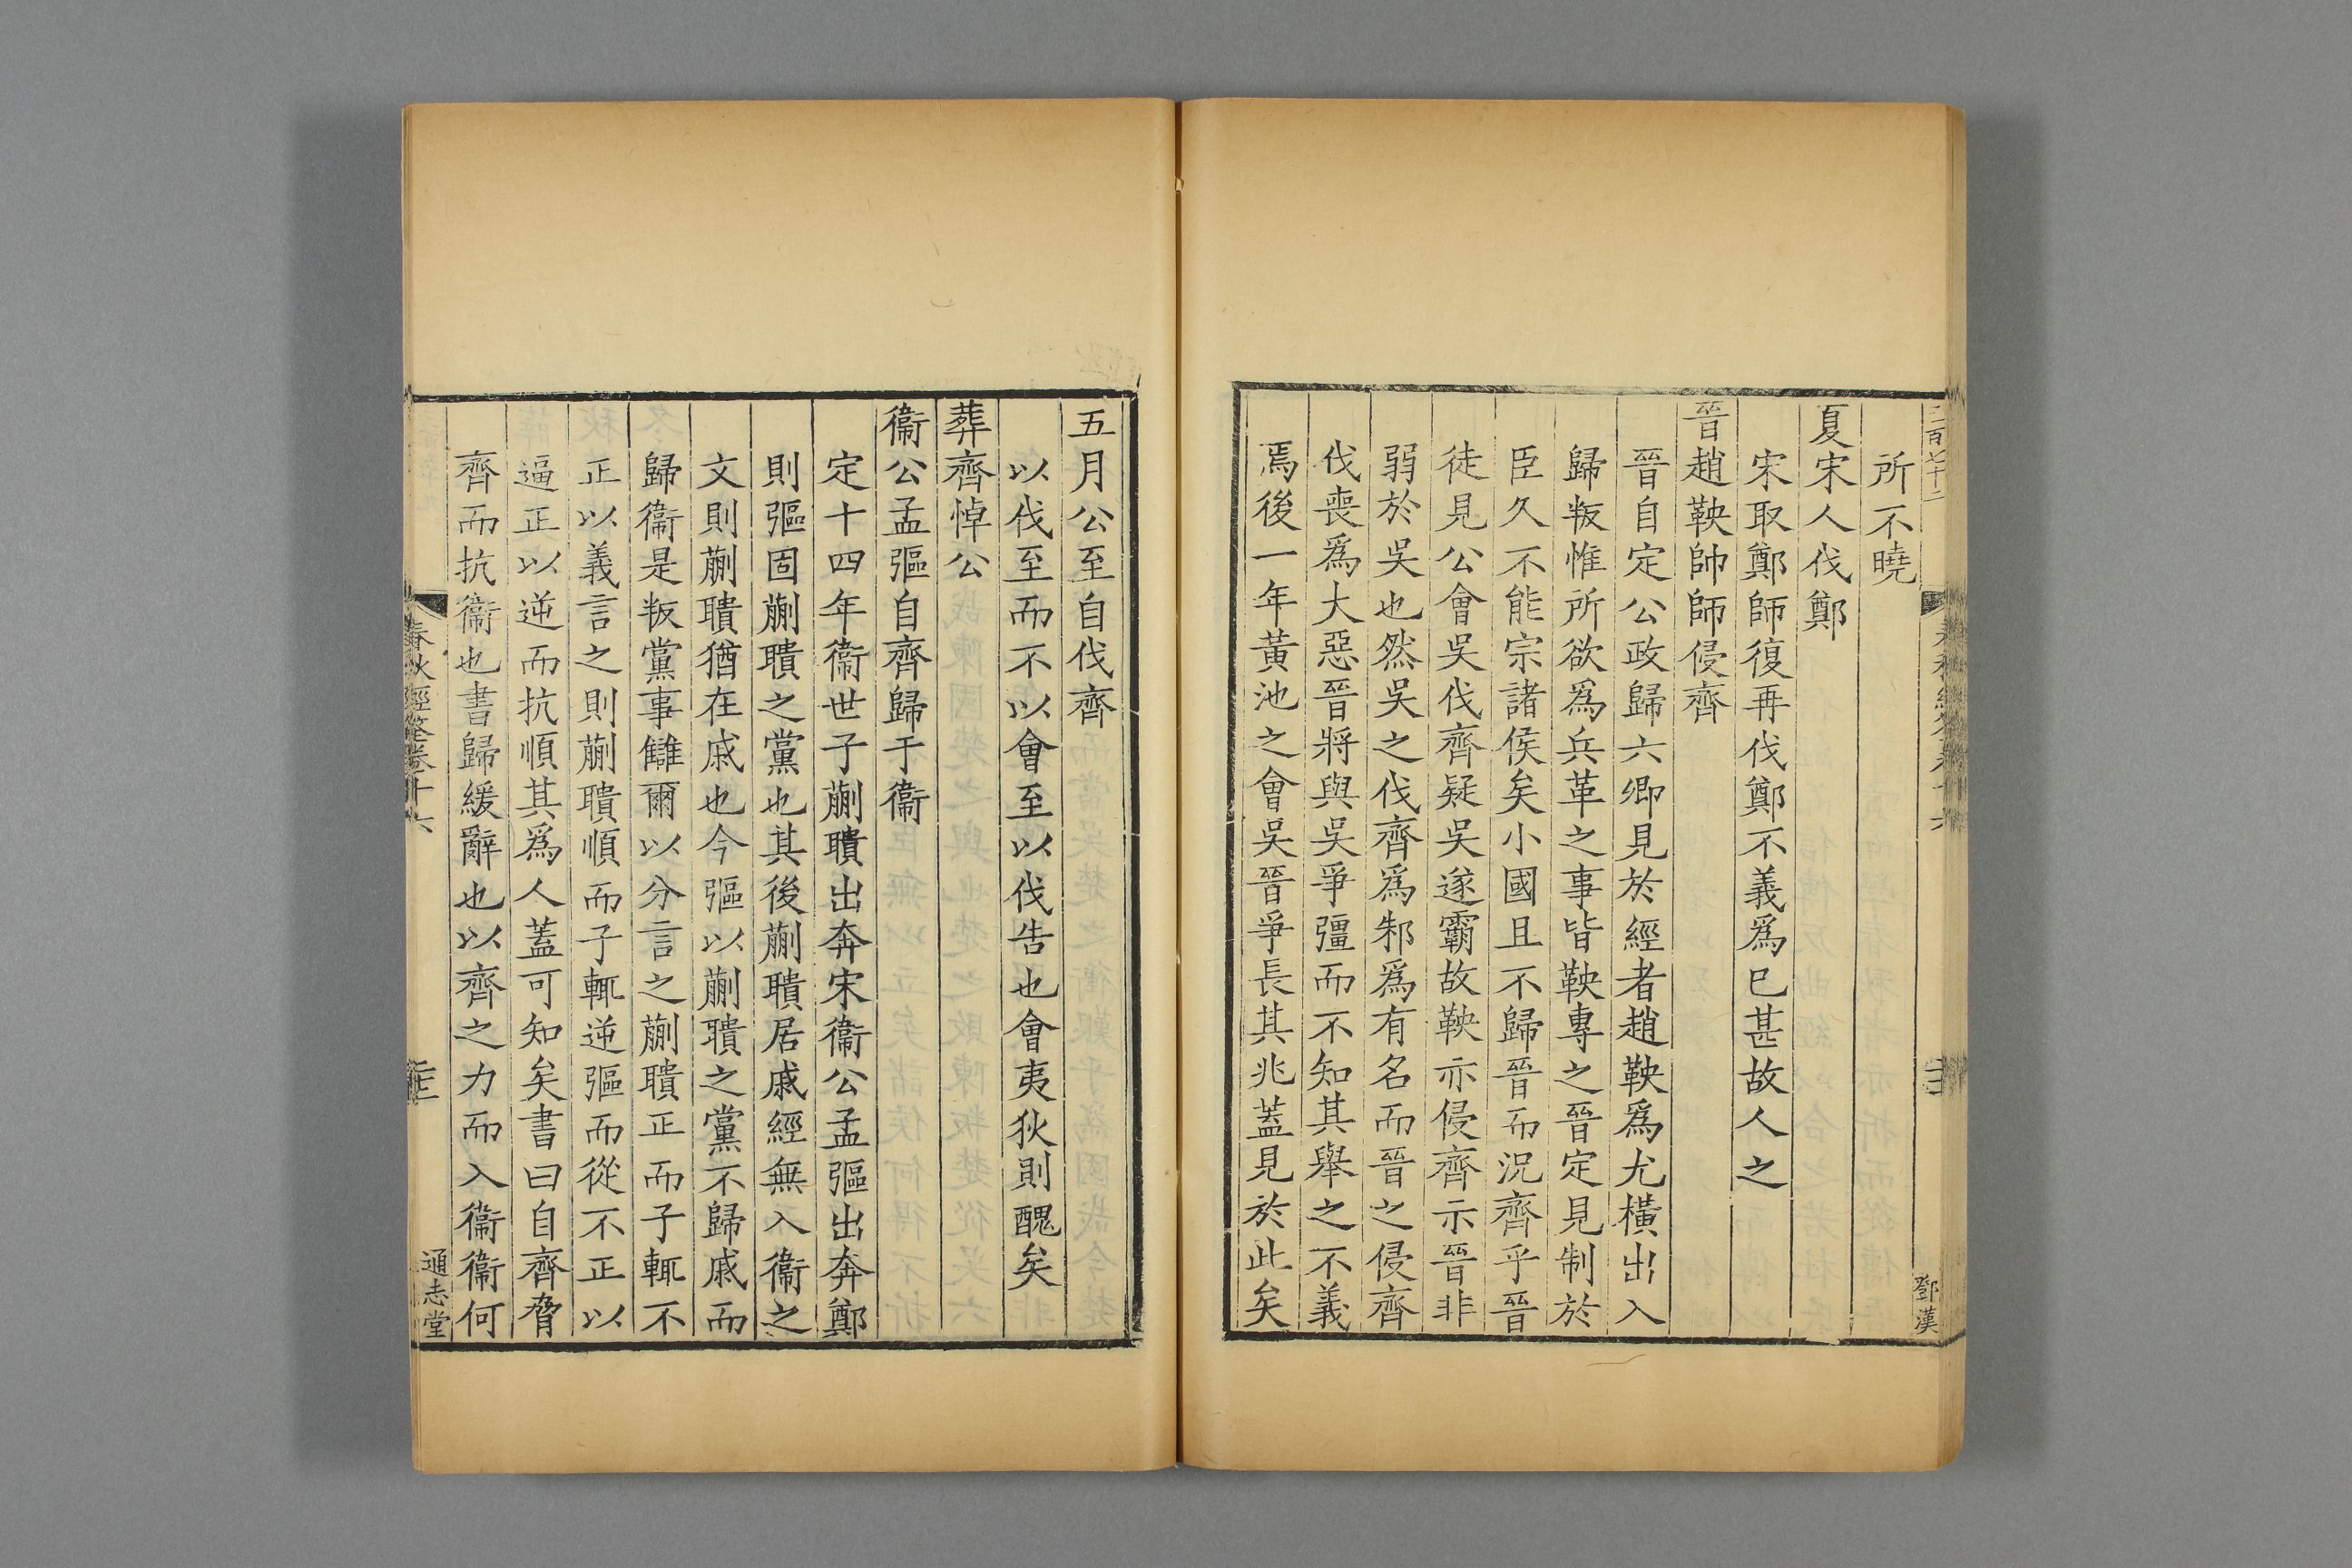 所不曉
夏宋人伐鄭
宋取鄭師復再伐鄭不義爲已甚故人之
晉趙鞅帥師侵齊
晉自定公政歸六卿見於經者趙鞅爲尤橫出入
歸叛惟所欲爲兵革之事皆鞅專之晉定見制於
臣久不能宗諸侯矣小國且不歸晉而況齊乎晉
徒見公會吳伐齊疑吳遂霸故鞅亦侵齊示晉非
弱於吳也然吳之伐齊爲邾爲有名而晉之侵齊
伐喪爲大惡晉將與吳爭彊而不知其舉之不義
焉後一年黃池之會吳晉爭長其兆蓋見於此矣
鄧漢
五月公至自伐齊
以伐至而不以會至以伐告也會夷狄則醜矣
葬齊悼公
衞公孟彄自齊歸于衞
定十四年衞世子蒯聵出奔宋衞公孟彄出奔鄭
則彄固蒯聵之黨也其後蒯聵居戚經無入衞之
文則蒯聵猶在戚也今彄以蒯聵之黨不歸戚而
歸衞是叛黨事讎爾以分言之蒯聵正而子輒不
正以義言之則蒯聵順而子輒逆彄而從不正以
逼正以逆而抗順其爲人蓋可知矣書曰自齊脅
齊而抗衞也書歸緩辭也以齊之力而入衞衞何
春秋經筌卷十六
通志堂